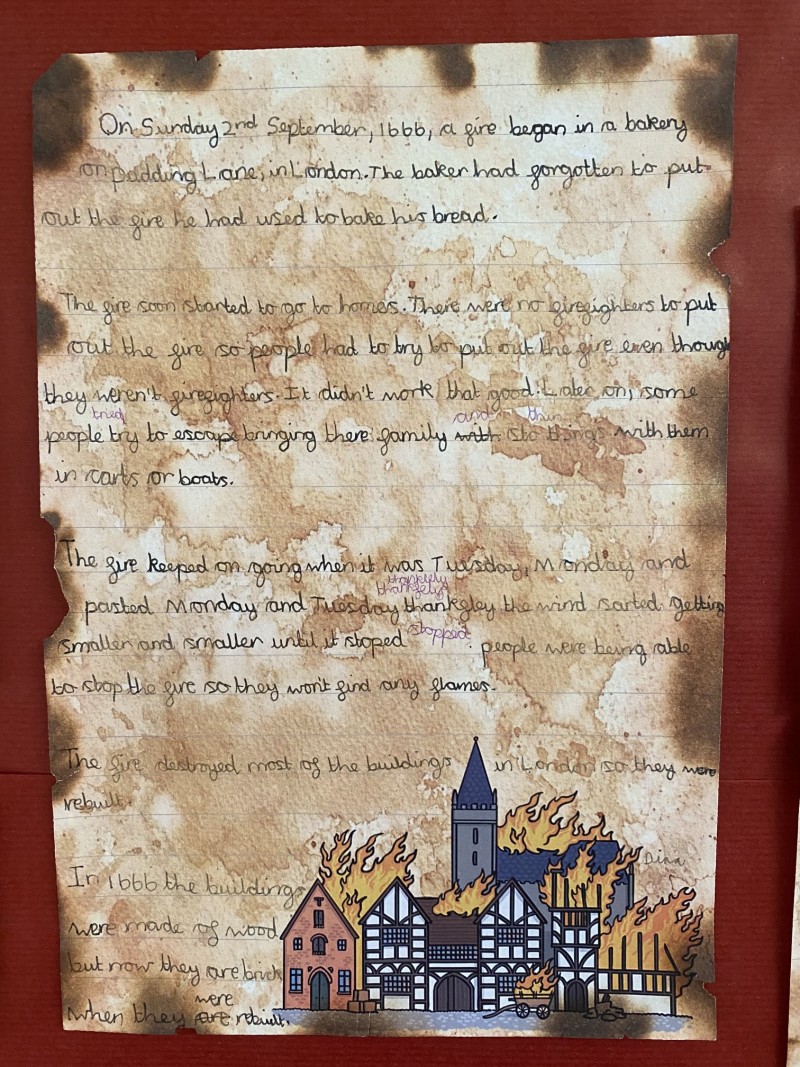 On Sunday 2nd September, 1666, a fire began in a bakery
on pudding Lane, in London. The baker had forgotten to put
out the fire he had used to bake his bread.
The fire soon started to go to homes. There were no firefighters to put
out the fire so people had to try to put out the fire even though
they weren't firefighters. It didn't work that good. Later on, some
tried and thin
people try to escape bringing there family with sto things with them
in carts or boats.
The fire keeped on going when it was Tuesday, Monday and
thankfely
thankfely
pasted Monday and Tuesday thankfley the wind sarted getting
smaller and smaller until it stoped stopped. people were being able
to stop the fire so they won't find any flames.
The fire destroyed most of the buildings in London so they were
rebuilt.
Dina
In 1666 the buildings
were made of wood
but now they are brick
were
when they are rebuilt.